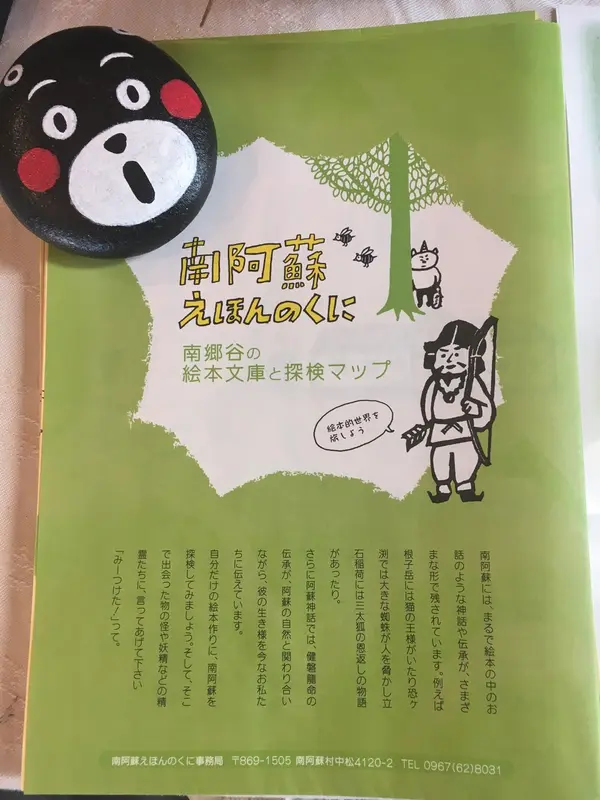 南阿蘇
えほんのくに
南郷谷の
絵本文庫と探検マップ
絵本的世界を
旅しよう
南阿蘇には、まるで絵本の中のお
話のような神話や伝承が、さまざ
まな形で残されています。例えば
根子岳には猫の王様がいたり恐ヶ
渕では大きな蜘蛛が人を脅かし立
石稲荷には三太狐の恩返しの物語
があったり。
さらに阿蘇神話では、健磐龍命の
伝承が、阿蘇の自然と関わり合い
ながら、彼の生き様を今なお私た
ちに伝えています。
自分だけの絵本作りに、南阿蘇を
探検してみましょう。そして、そこ
で出会った物の怪や妖精などの精
霊たちに、言ってあげて下さい
「みーつけた！」って。
南阿蘇えほんのくに事務局 〒869-1505 南阿蘇村中松4120-2 TEL 0967(62)8031